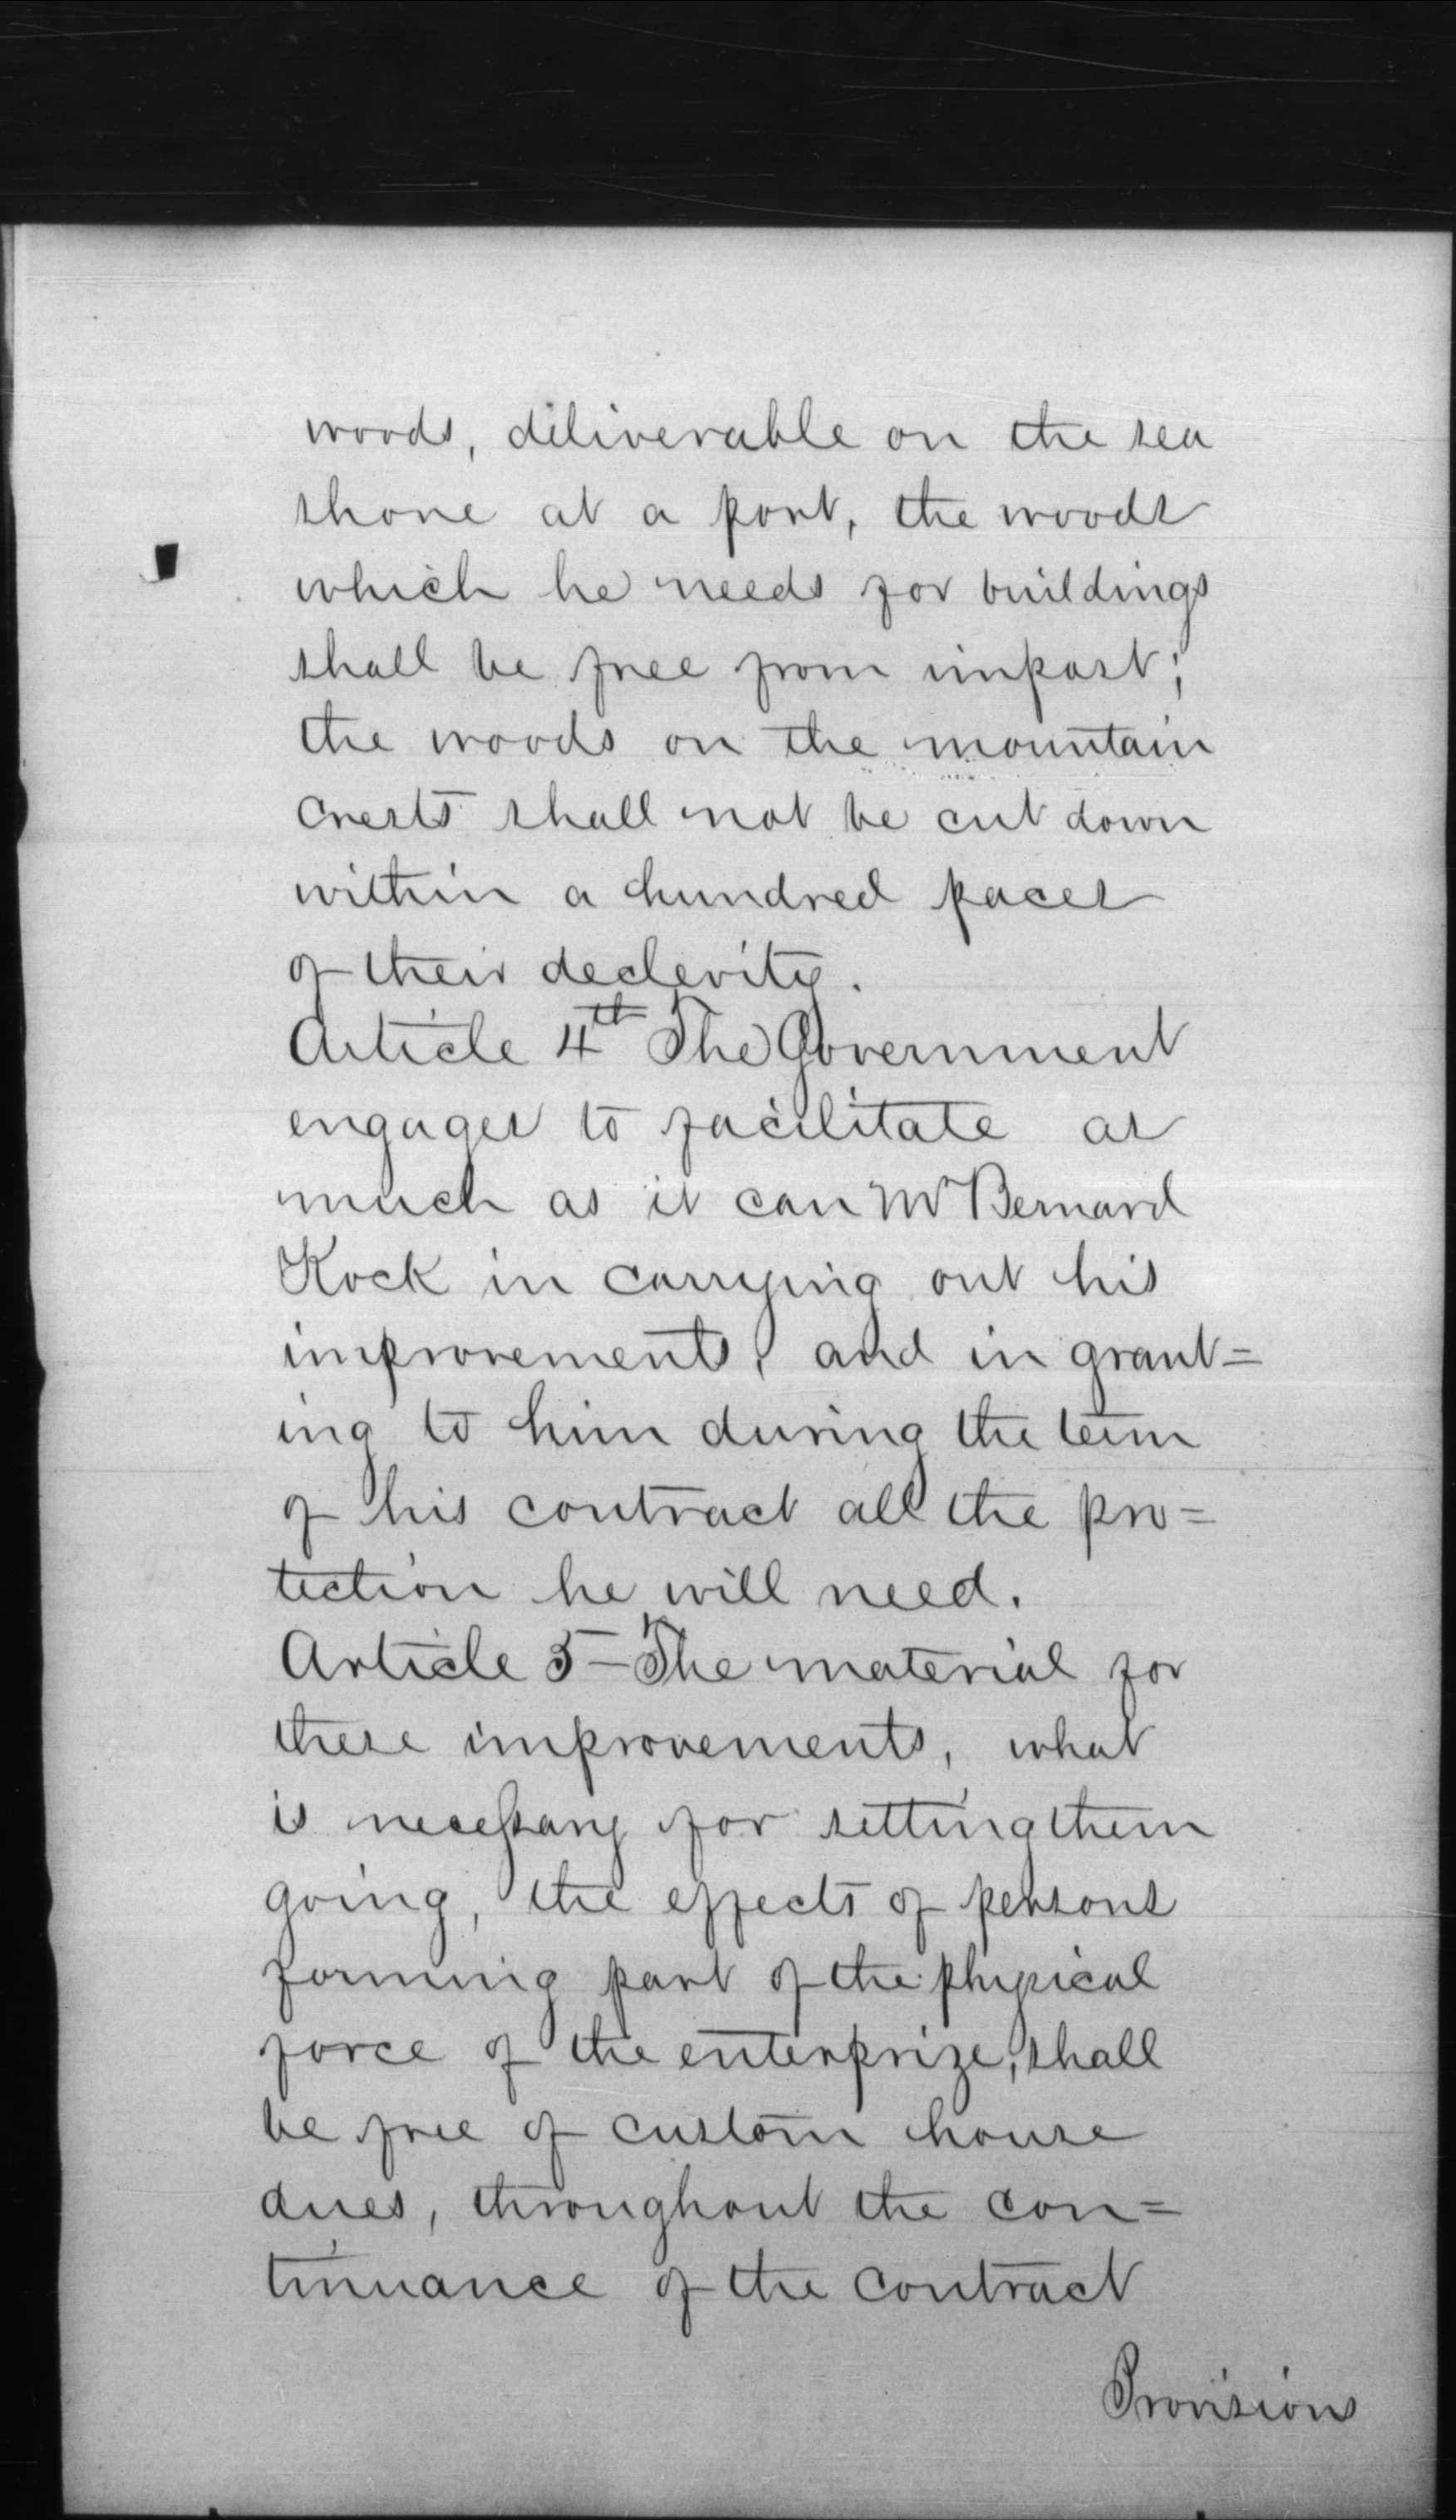 woods, diliverable on the sea
shore at a port, the woods
which he needs for buildings
shall be free from impost;
the woods on the mountain
crests shall not be cut down
within a hundred paces
of their declevity.
Article 4th The Government
engages to facilitate as
much as it can Mr Bernard
Kock in carrying out his
improvements, and in grant=
ing to him during the term
of his contract all the pro=
tection he will need.
Article 5 – The material for
these improvements, what
is necessary for setting them
going, the effects of persons
forming part of the physical
force of the enterprize, shall
be free of custom house
dues, throughout the con=
tinuance of the contract
Provisions